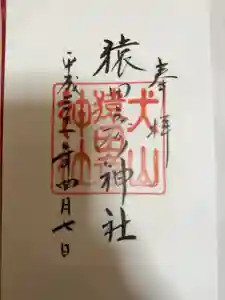 奉拝
猿田彦神社
犬山
猿田
神社
平成三十年四月七日